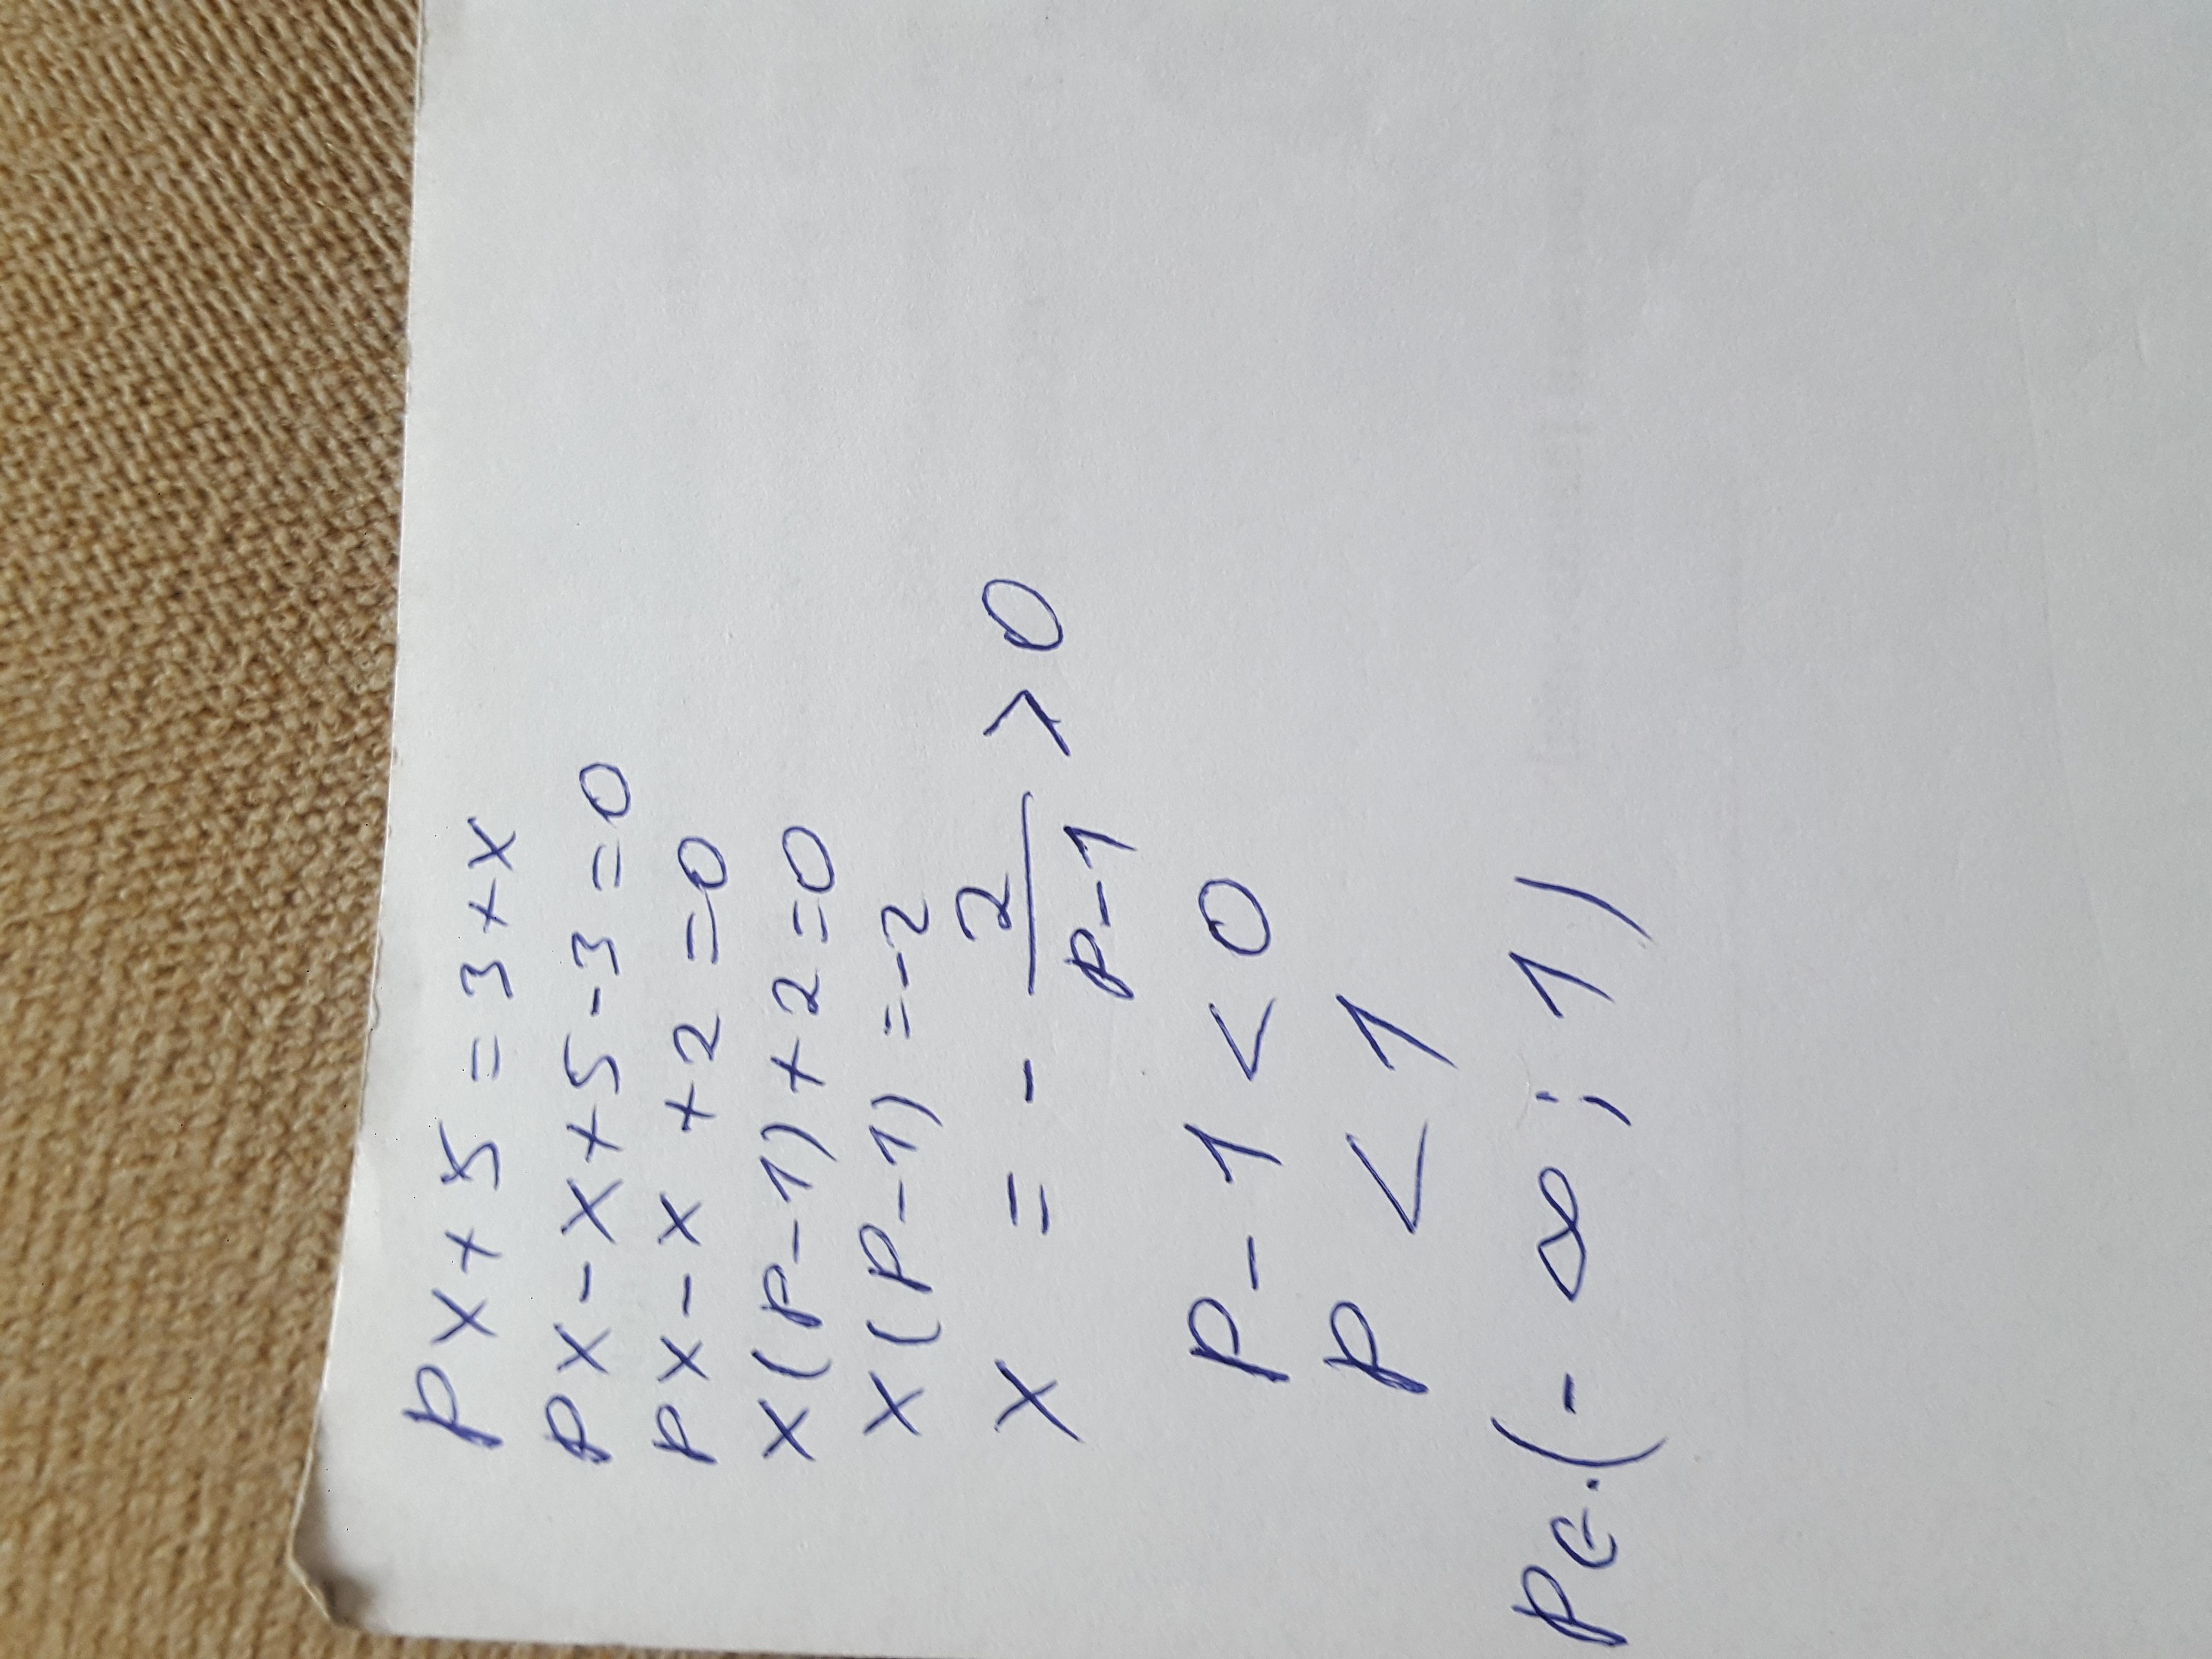 px + 5 = 3 + x
px - x + 5 - 3 = 0
px - x + 2 = 0
x(p-1) + 2 = 0
x(p-1) = -2
x = - 2/(p-1) > 0
p - 1 < 0
p < 1
p ∈ (-∞; 1)